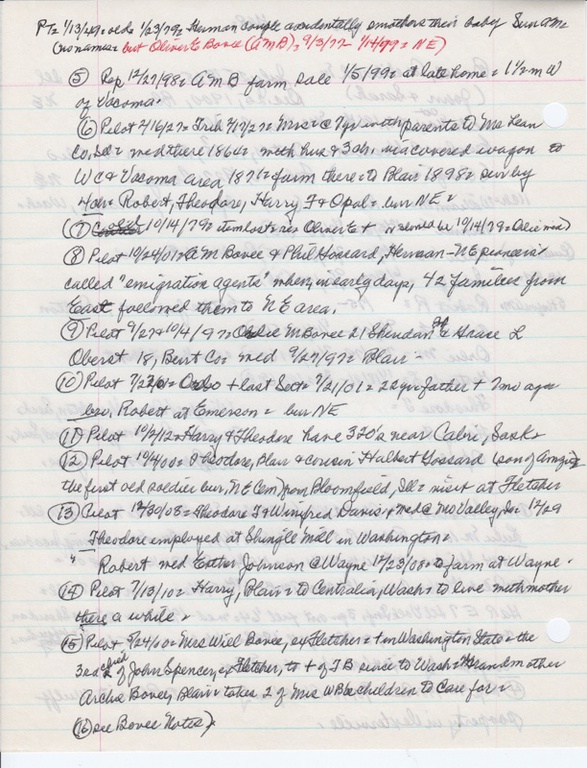 PT= 1/13/49= olds 1/23/79= Herman couple accidentally smothers their baby Sun AM=
(no name= but Oliver E Bovee (AMB)= 9/3/77 1/14/99= NE)
⑤ Rep 12/27/98= AMB farm sale 1/5/99= at late home= 1½ m W
of Vacoma.
⑥ Pilot 2/16/27= Trib 2/17/27= Mrs= @ 7yr with parents to McLean
Co, Ill= med there 186 = with hus & 3 ch. via covered wagon to
WC & Vacoma area 1871= farm there= to Blair 1898= surv by
4 ch= Robert, Theodore, Harry F & Opal= bur NE=
⑦ 10/14/79= Oliver E +
⑧ Pilot 10/24/01= AM Bovee & Phil Gossard, Herman-NE pioneers
called "emigration agents" when, in early days, 42 families from
East followed them to NE area.
⑨ Pilot 9/27 & 10/4/97= M Bovee 21 Sheridan & Grace L
Oberst 18, Burt Co= med 9/27/97= Blair -
⑩ Pilot 7/2 /01= + last Sat= 7/21/01= 22 yr= father + 7 mo ago=
bro, Robert at Emerson= bur NE
⑪ Pilot 10/2/12= Harry & Theodore have 320's near Cabri, Sask=
⑫ Pilot 10/4/00= Theodore, Blair & cousin Halbert Gossard (son of
the first old soldier bur, NE Cem) from Bloomfield, Ill= visit at Fletcher
⑬ Pilot 12/30/08= Theodore F & Winifred Davis= med @ Mo Valley, Ia= 12/29
Theodore employed at Shingle Mill in Washington=
" Robert med Esther Johnson @ Wayne 12/23/08= to farm at Wayne.
⑭ Pilot 7/13/10= Harry, Blair= to Centralia, Wash= to live with mother
there a while=
⑮ Pilot 24/60= Mrs Will Bovee, ex Fletcher= + in Washington State= the
3rd child of John Spencer, ex Fletcher, to + of TB since to Wash= Grandmother
Archa Bovee, Blair= takes 2 of Mrs WB= children to care for=
⑯ see Bovee Notes).